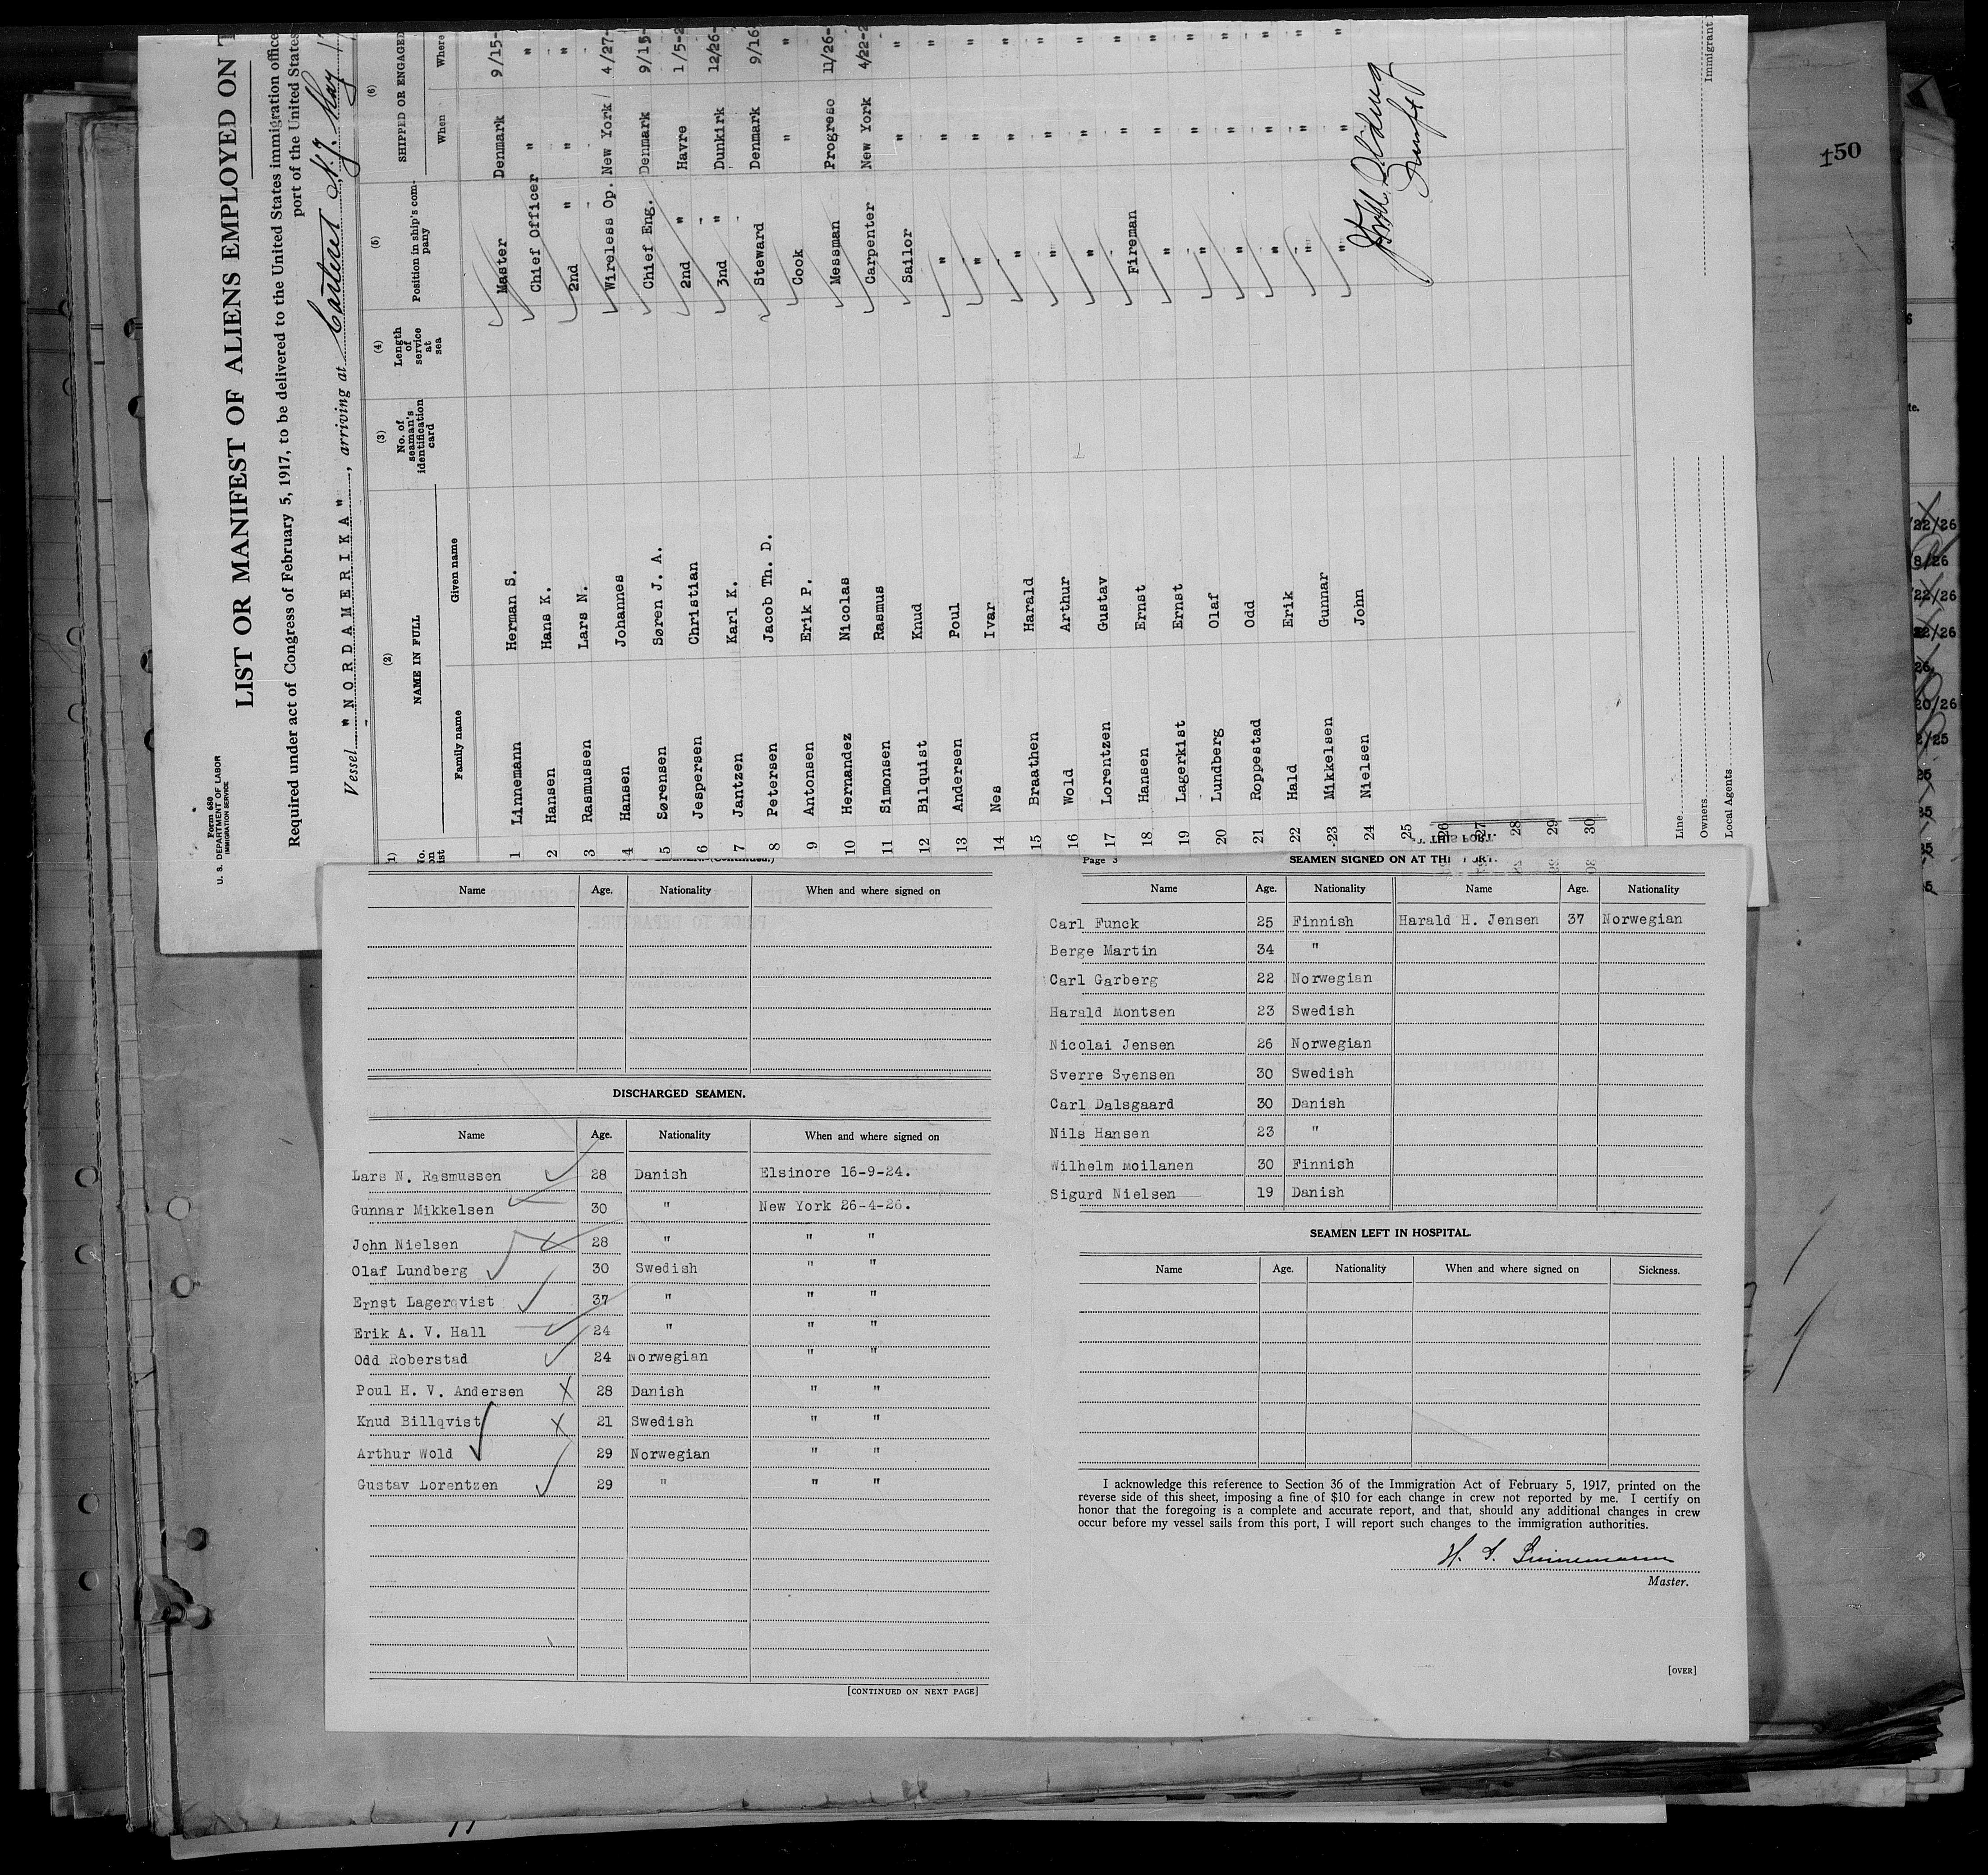 Form 680
U. S. DEPARTMENT OF LABOR
IMMIGRATION SERVICE
LIST OR MANIFEST OF ALIENS EMPLOYED ON
Required under act of Congress of February 5, 1917, to be delivered to the United States immigration office
port of the United States
Vessel "NORDAMERIKA", arriving at Carteret N.J. May 17
(1) (2) (3) (4) (5) (6)
No. on list NAME IN FULL No. of seaman's identification card Length of service at sea Position in ship's company SHIPPED OR ENGAGED
Family name Given name When Where
1 Linnemann Herman S. Master Denmark 9/15-
2 Hansen Hans K. Chief Officer " "
3 Rasmussen Lars N. 2nd " " "
4 Hansen Johannes Wireless Op. New York 4/27-
5 Sørensen Søren J. A. Chief Eng. Denmark 9/15-
6 Jespersen Christian 2nd " Havre 1/5-2
7 Jantzen Karl K. 3nd " Dunkirk 12/26-
8 Petersen Jacob Th. D. Steward Denmark 9/16
9 Antonsen Erik P. Cook " "
10 Hernandez Nicolas Messman Progreso 11/26-
11 Simonsen Rasmus Carpenter New York 4/22-2
12 Bilquist Knud Sailor " "
13 Andersen Poul " " "
14 Nes Ivar " " "
15 Braathen Harald " " "
16 Wold Arthur " " "
17 Lorentzen Gustav " " "
18 Hansen Ernst Fireman " "
19 Lagerkist Ernst " " "
20 Lundberg Olaf " " "
21 Roppestad Odd " " "
22 Hald Erik " " "
23 Mikkelsen Gunnar " " "
24 Nielsen John " " "
25
26
27
28
29
30
Line
Owners
Local Agents
Immigrant
150
Name Age. Nationality When and where signed on
DISCHARGED SEAMEN.
Name Age. Nationality When and where signed on
Lars N. Rasmussen 28 Danish Elsinore 16-9-24.
Gunnar Mikkelsen 30 " New York 26-4-26.
John Nielsen 28 " " "
Olaf Lundberg 30 Swedish " "
Ernst Lagerqvist 37 " " "
Erik A. V. Hall 24 " " "
Odd Roberstad 24 Norwegian " "
Poul H. V. Andersen 28 Danish " "
Knud Billqvist 21 Swedish " "
Arthur Wold 29 Norwegian " "
Gustav Lorentzen 29 " " "
[CONTINUED ON NEXT PAGE]
Page 3 SEAMEN SIGNED ON AT THIS PORT.
Name Age. Nationality Name Age. Nationality
Carl Funck 25 Finnish Harald H. Jensen 37 Norwegian
Berge Martin 34 "
Carl Garberg 22 Norwegian
Harald Montsen 23 Swedish
Nicolai Jensen 26 Norwegian
Sverre Svensen 30 Swedish
Carl Dalsgaard 30 Danish
Nils Hansen 23 "
Wilhelm moilanen 30 Finnish
Sigurd Nielsen 19 Danish
SEAMEN LEFT IN HOSPITAL.
Name Age. Nationality When and where signed on Sickness.
I acknowledge this reference to Section 36 of the Immigration Act of February 5, 1917, printed on the
reverse side of this sheet, imposing a fine of $10 for each change in crew not reported by me. I certify on
honor that the foregoing is a complete and accurate report, and that, should any additional changes in crew
occur before my vessel sails from this port, I will report such changes to the immigration authorities.
H. S. Linnemann
Master.
[OVER]
22/26
22/26
20/26